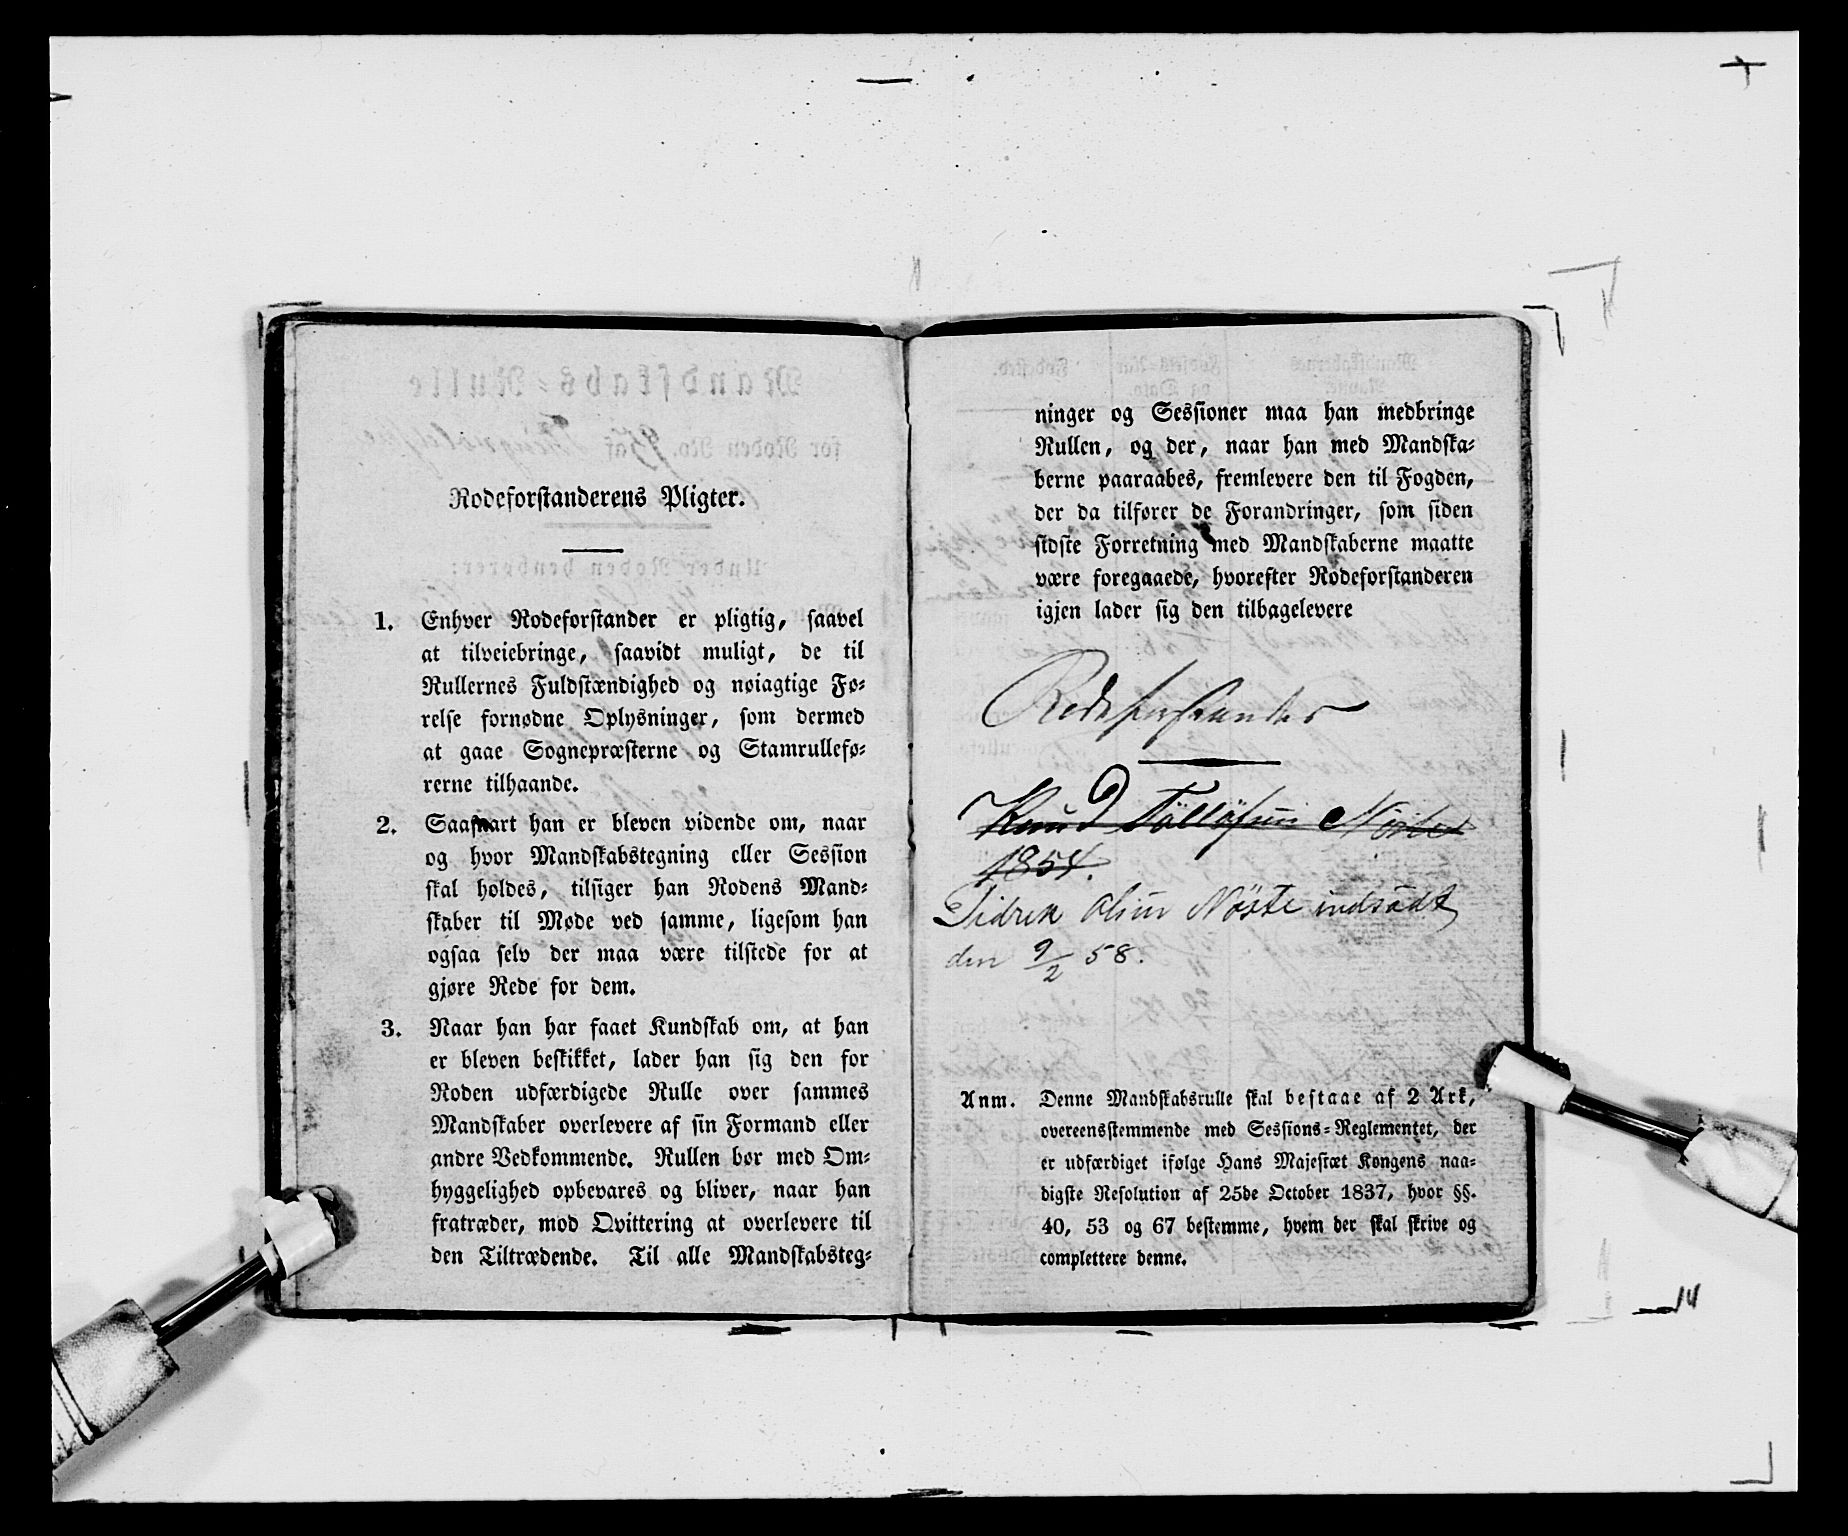 Rodeforstanderens Pligter.
1. Enhver Rodeforstander er pligtig, saavel
at tilveiebringe, saavidt muligt, de til
Rullernes Fuldstændighed og nøiagtige Fø-
relse fornødne Oplysninger, som dermed
at gaae Sognepræsterne og Stamrullefø-
rerne tilhaande.
2. Saasnart han er bleven vidende om, naar
og hvor Mandskabstegning eller Session
skal holdes, tilsiger han Rodens Mand-
skaber til Møde ved samme, ligesom han
ogsaa selv der maa være tilstede for at
gjøre Rede for dem.
3. Naar han har faaet Kundskab om, at han
er bleven beskikket, lader han sig den for
Roden udfærdigede Rulle over sammes
Mandskaber overlevere af sin Formand eller
andre Vedkommende. Rullen bør med Om-
hyggelighed opbevares og bliver, naar han
fratræder, mod Qvittering at overlevere til
den Tiltrædende. Til alle Mandskabsteg-
ninger og Sessioner maa han medbringe
Rullen, og der, naar han med Mandska-
berne paaraabes, fremlevere den til Fogden,
der da tilfører de Forandringer, som siden
sidste Forretning med Mandskaberne maatte
være foregaaede, hvorefter Rodeforstanderen
igjen lader sig den tilbagelevere
Rodeforstander
Knud
1854.
Sidren Olsen Nöste indsadt
den 9/2 58.
Anm. Denne Mandskabsrulle skal bestaae af 2 Ark,
overeensstemmende med Sessions-Reglementet, der
er udfærdiget ifølge Hans Majestæt Kongens naa-
digste Resolution af 25de October 1837, hvor §§.
40, 53 og 67 bestemme, hvem der skal skrive og
complettere denne.
14